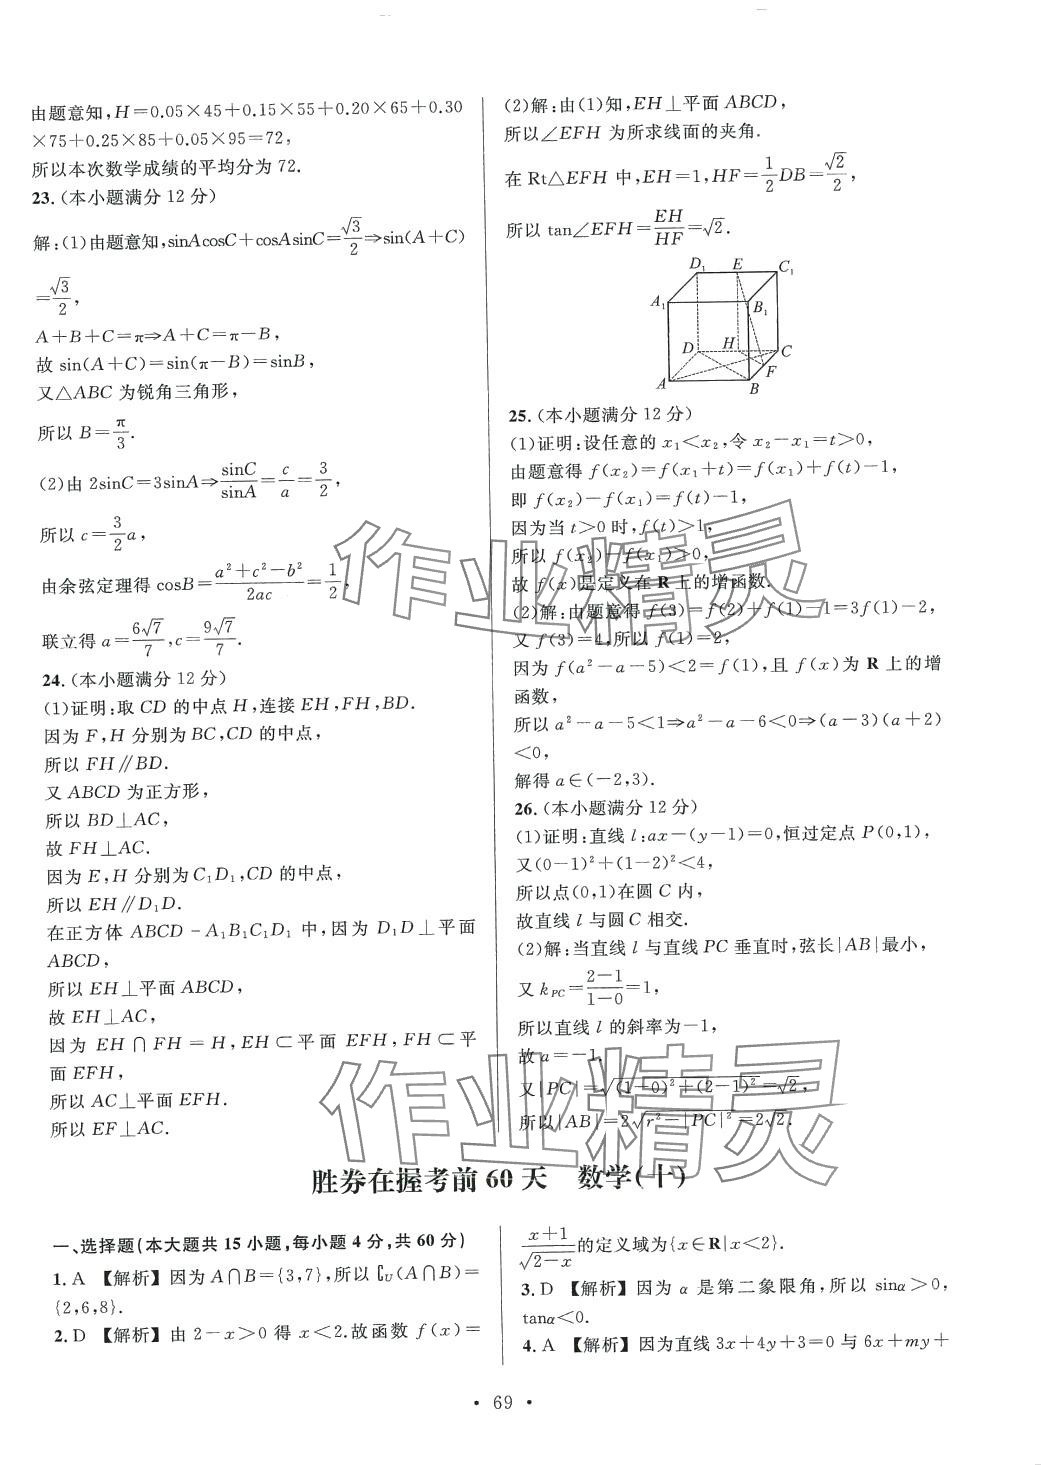 由题意知,H=0.05×45+0.15×55+0.20×65+0.30
×75+0.25×85+0.05×95=72,
所以本次数学成绩的平均分为 72.
23.(本小题满分 12 分)
解:(1)由题意知,sinAcosC+cosAsinC=√3/2⇒sin(A+C)
=√3/2,
A+B+C=π⇒A+C=π-B,
故 sin(A+C)=sin(π-B)=sinB,
又△ABC 为锐角三角形,
所以 B=π/3.
(2)由 2sinC=3sinA⇒sinC/sinA=c/a=3/2,
所以 c=3/2a,
由余弦定理得 cosB=(a²+c²-b²)/2ac=1/2,
联立得 a=6√7/7,c=9√7/7.
24.(本小题满分 12 分)
(1)证明:取 CD 的中点 H,连接 EH,FH,BD.
因为 F,H 分别为 BC,CD 的中点,
所以 FH∥BD.
又 ABCD 为正方形,
所以 BD⊥AC,
故 FH⊥AC.
因为 E,H 分别为 C₁D₁,CD 的中点,
所以 EH∥D₁D.
在正方体 ABCD-A₁B₁C₁D₁ 中,因为 D₁D⊥平面
ABCD,
所以 EH⊥平面 ABCD,
故 EH⊥AC,
因为 EH∩FH=H,EH⊂平面 EFH,FH⊂平
面 EFH,
所以 AC⊥平面 EFH.
所以 EF⊥AC.
(2)解:由(1)知,EH⊥平面 ABCD,
所以∠EFH 为所求线面的夹角.
在 Rt△EFH 中,EH=1,HF=1/2DB=√2/2,
所以 tan∠EFH=EH/HF=√2.
D₁ E C₁
A₁ B₁
D H C
F
A B
25.(本小题满分 12 分)
(1)证明:设任意的 x₁<x₂,令 x₂-x₁=t>0,
由题意得 f(x₂)=f(x₁+t)=f(x₁)+f(t)-1,
即 f(x₂)-f(x₁)=f(t)-1,
因为当 t>0 时,f(t)>1,
所以 f(x₂)-f(x₁)>0,
故 f(x)是定义在 R 上的增函数.
(2)解:由题意得 f(3)=f(2)+f(1)-1=3f(1)-2,
又 f(3)=4,所以 f(1)=2,
因为 f(a²-a-5)<2=f(1),且 f(x)为 R 上的增
函数,
所以 a²-a-5<1⇒a²-a-6<0⇒(a-3)(a+2)
<0,
解得 a∈(-2,3).
26.(本小题满分 12 分)
(1)证明:直线 l:ax-(y-1)=0,恒过定点 P(0,1),
又(0-1)²+(1-2)²<4,
所以点(0,1)在圆 C 内,
故直线 l 与圆 C 相交.
(2)解:当直线 l 与直线 PC 垂直时,弦长|AB|最小,
又 k_PC=(2-1)/(1-0)=1,
所以直线 l 的斜率为-1,
故 a=-1.
又|PC|=√((1-0)²+(2-1)²)=√2,
所以|AB|=2√(r²-|PC|²)=2√2.
作业精灵
作业精灵
胜券在握考前 60 天 数学(十)
一、选择题(本大题共 15 小题,每小题 4 分,共 60 分)
1. A 【解析】因为 A∩B={3,7},所以 ∁U(A∩B)=
{2,6,8}.
2. D 【解析】由 2-x>0 得 x<2.故函数 f(x)=
(x+1)/√(2-x)的定义域为{x∈R|x<2}.
3. D 【解析】因为 α 是第二象限角,所以 sinα>0,
tanα<0.
4. A 【解析】因为直线 3x+4y+3=0 与 6x+my+
• 69 •